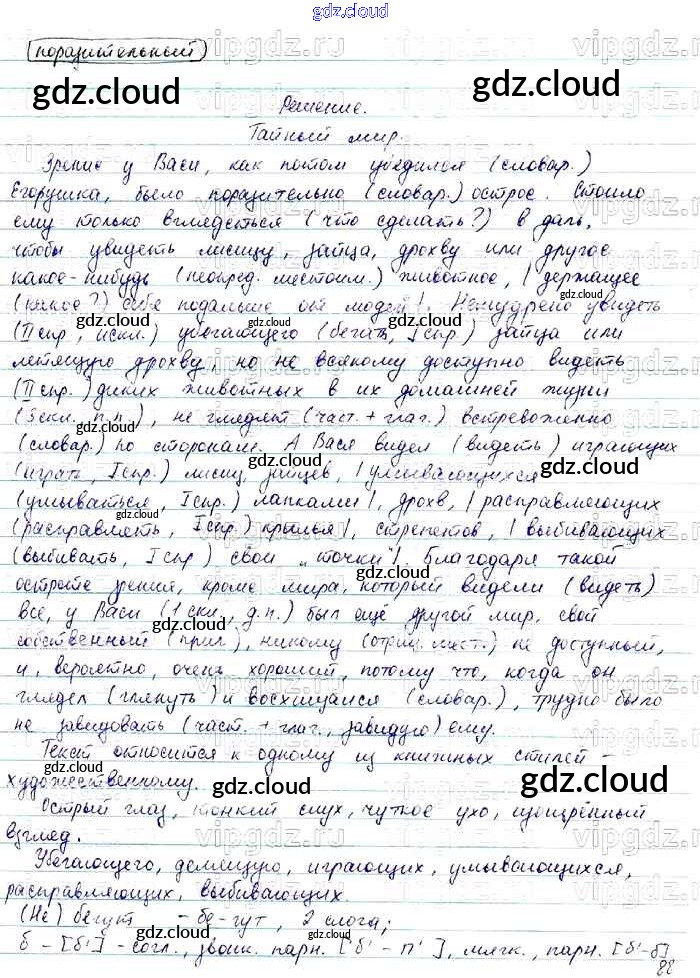 gdz.cloud
поразительный
Решение.
Тайный мир.
Зрение у Васи, как потом убедился (словар.)
Егорушка, было поразительно (словар.) острое. Стоило
ему только вглядеться (что сделать?) в даль,
чтобы увидеть лисицу, зайца, дрохву или другое
какое-нибудь (неопред. местоим.) животное, | держащее
(какое?) себя подальше от людей |. Немудрено увидеть
(II спр., искл.) убегающего (бегать, I спр.) зайца или
летящую дрохву, но не всякому доступно видеть
(II спр.) диких животных в их домашней жизни
(3 скл., п.п.), не глядят (част. + глаг.) встревоженно
(словар.) по сторонам. А Вася видел (видеть) играющих
(играть, I спр.) лисиц, зайцев, | умывающихся
(умываться, I спр.) лапками |, дрохв, | расправляющих
(расправлять, I спр.) крылья |, стрепетов, | выбивающих
(выбивать, I спр) свои „точки" |. Благодаря такой
остроте зрения, кроме мира, который видели (видеть)
все, у Васи (1 скл., д.п.) был ещё другой мир, свой
собственный (прил.), никому (отриц. мест.) не доступный,
и, вероятно, очень хороший, потому что, когда он
глядел (глянуть) и восхищался (словар.), трудно было
не завидовать (част. + глаг., завидую) ему.
Текст относится к одному из книжных стилей –
художественному.
Острый глаз, тонкий слух, чуткое ухо, изощрённый
взгляд.
Убегающего, летящую, играющих, умывающихся,
расправляющих, выбивающих.
(Не) бегут – бе-гут, 2 слога;
б – [б'] – согл., звонк. парн. [б' – п'], мягк., парн. [б'-б]
88